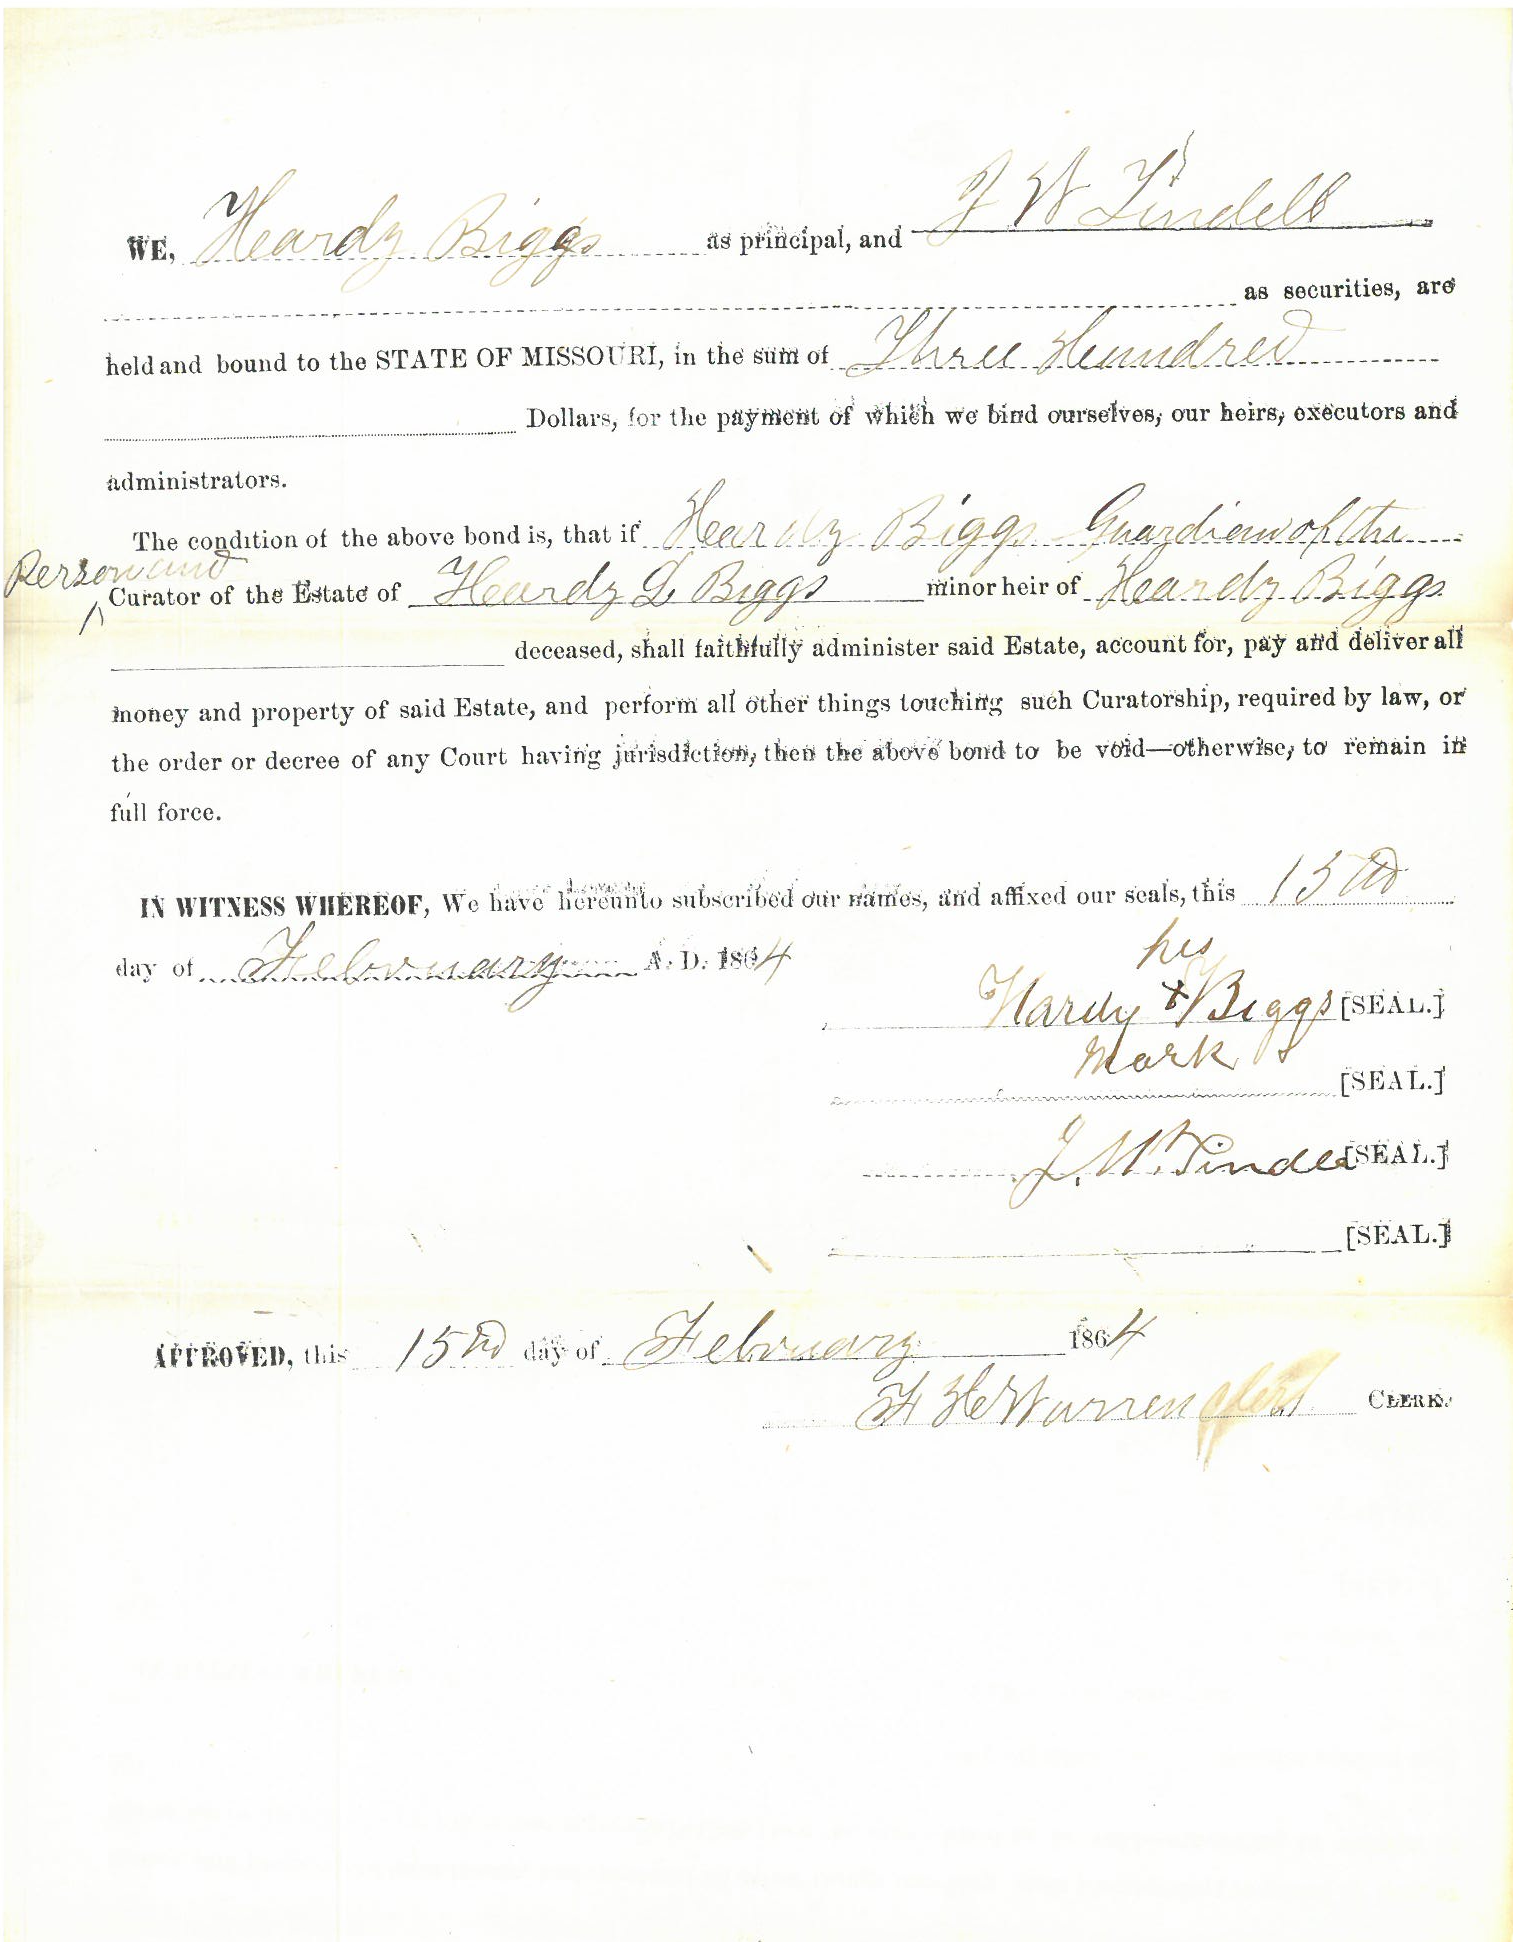 WE, Heardy Biggs as principal, and J W Tindell
as securities, are
held and bound to the STATE OF MISSOURI, in the sum of Three Hundred
Dollars, for the payment of which we bind ourselves, our heirs, executors and
administrators.
The condition of the above bond is, that if Heardy Biggs Guardian of the
Person and
Curator of the Estate of Heardy L Biggs minor heir of Heardy Biggs
deceased, shall faithfully administer said Estate, account for, pay and deliver all
money and property of said Estate, and perform all other things touching such Curatorship, required by law, or
the order or decree of any Court having jurisdiction, then the above bond to be void—otherwise, to remain in
full force.
IN WITNESS WHEREOF, We have hereunto subscribed our names, and affixed our seals, this 15th
day of February A. D. 1864
his
Hardy x Biggs [SEAL.]
mark
[SEAL.]
J. W. Tindel [SEAL.]
[SEAL.]
APPROVED, this 15th day of February 1864
F H Warren Clerk CLERK.